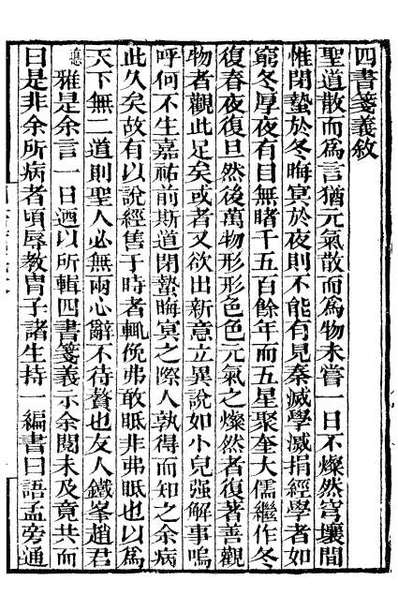 四書箋義敘
聖道散而爲言猶元氣散而爲物未嘗一日不燦然穹壤間
惟閉蟄於冬晦冥於夜則不能有見秦滅學滅捐經學者如
窮冬厚夜有目無睹千五百餘年而五星聚奎大儒繼作冬
復春夜復旦然後萬物形形色色元氣之燦然者復著善觀
物者觀此足矣或者又欲出新意立異說如小兒强解事嗚
呼何不生嘉祐前斯道閉蟄晦冥之際人孰得而知之余病
此久矣故有以說經售于時者輒俛弗敢眡非弗眡也以爲
天下無二道則聖人必無兩心辭不待贅也友人鐵峯趙君
悳雅是余言一日迺以所輯四書箋義示余閱未及竟共而
曰是非余所病者頃辱教冑子諸生持一編書曰語孟旁通